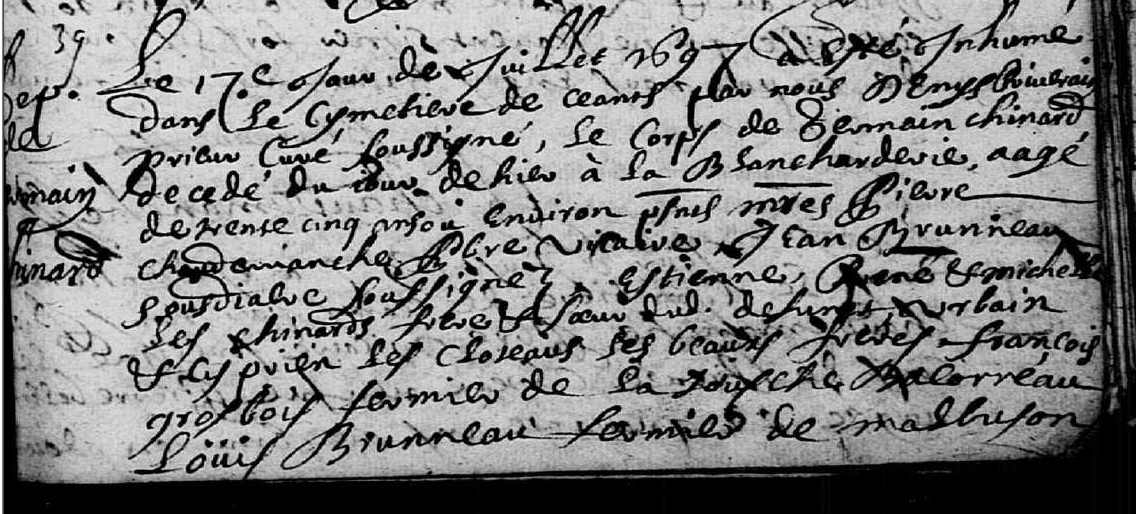 39.
Le 17e Jour de Juillet 1697 a esté Inhumé
Sep.
dans Le Cymetiere de ceants par nous Denys
prieur Curé soussigné, Le Corps de Germain chinard
decedé du iour de hier à La Blancharderie, aagé
de trente cinq ans ou Environ pnts mres Pierre
chinard
chaudemanche pbre vicaire, Jean Brunneau
sousdiacre soussignez, Estienne, René & michelle
Les chinards frere & sœur dud. defunt, vrbain
& Cyprien Les Cloteaux ses beaux freres, francois
grosbois fermier de La
Loüis Brunneau fermier de malbuson